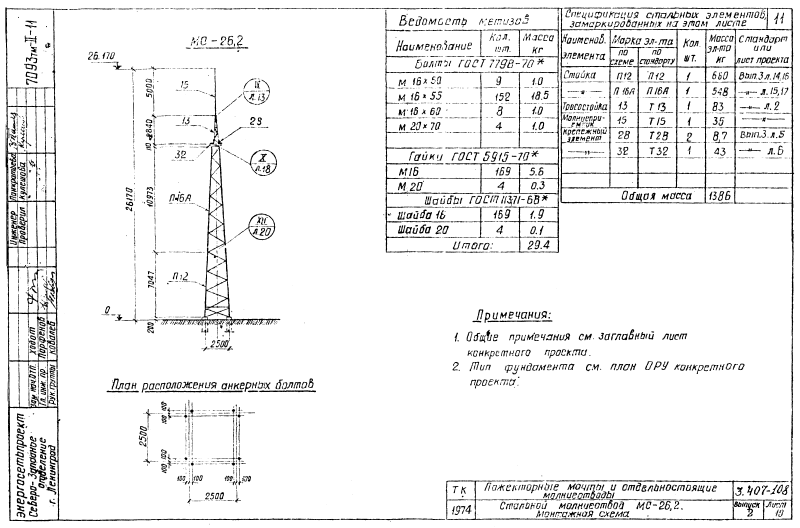 7093тм-II-11
МС-26,2
26.170
5000
15
II
л.13
2840
13
28
110
32
X
л.18
26170
10973
П16А
XII
л.20
7047
П12
0
200
2500
План расположения анкерных болтов
100 100
2500
100 100
100 100
2500
Ведомость метизов
Наименование
Кол. шт.
Масса кг
Болты ГОСТ 7798-70*
М 16×50 9 1.0
М 16×55 152 18.5
М 16×60 8 1.0
М 20×70 4 1.0
Гайки ГОСТ 5915-70*
М16 169 5.6
М 20 4 0.3
Шайбы ГОСТ 11371-68*
Шайба 16 169 1.9
Шайба 20 4 0.1
Итого: 29.4
Спецификация стальных элементов, замаркированных на этом листе
11
Наименов. элемента
Марка эл-та
по схеме
по стандарту
Кол. шт.
Масса эл-та кг
Стандарт или лист проекта
Стойка П12 П12 1 660 Вып.3 л.14,16
—"— П16А П16А 1 548 —"— л.15,17
Тросостойка 13 Т13 1 83 —"— л.2
Молниеприемник 15 Т15 1 35 —"—
Крепежный элемент 28 Т28 2 8,7 Вып.3 л.5
—"— 32 Т32 1 43 —"— л.6
Общая масса 1386
Примечания:
1. Общие примечания см. заглавный лист
конкретного проекта.
2. Тип фундамента см. план ОРУ конкретного
проекта.
Инженер Панкратова
Проверил Кулешова
Зам. нач. отп. Ходот
Гл. инж. пр. Парфенов
Рук. группы Ковалев
Энергосетьпроект
Северо-Западное
отделение
г. Ленинград
ТК
1974
Прожекторные мачты и отдельностоящие
молниеотводы
Стальной молниеотвод МС-26,2.
Монтажная схема.
3.407-108
Выпуск 2
Лист 10